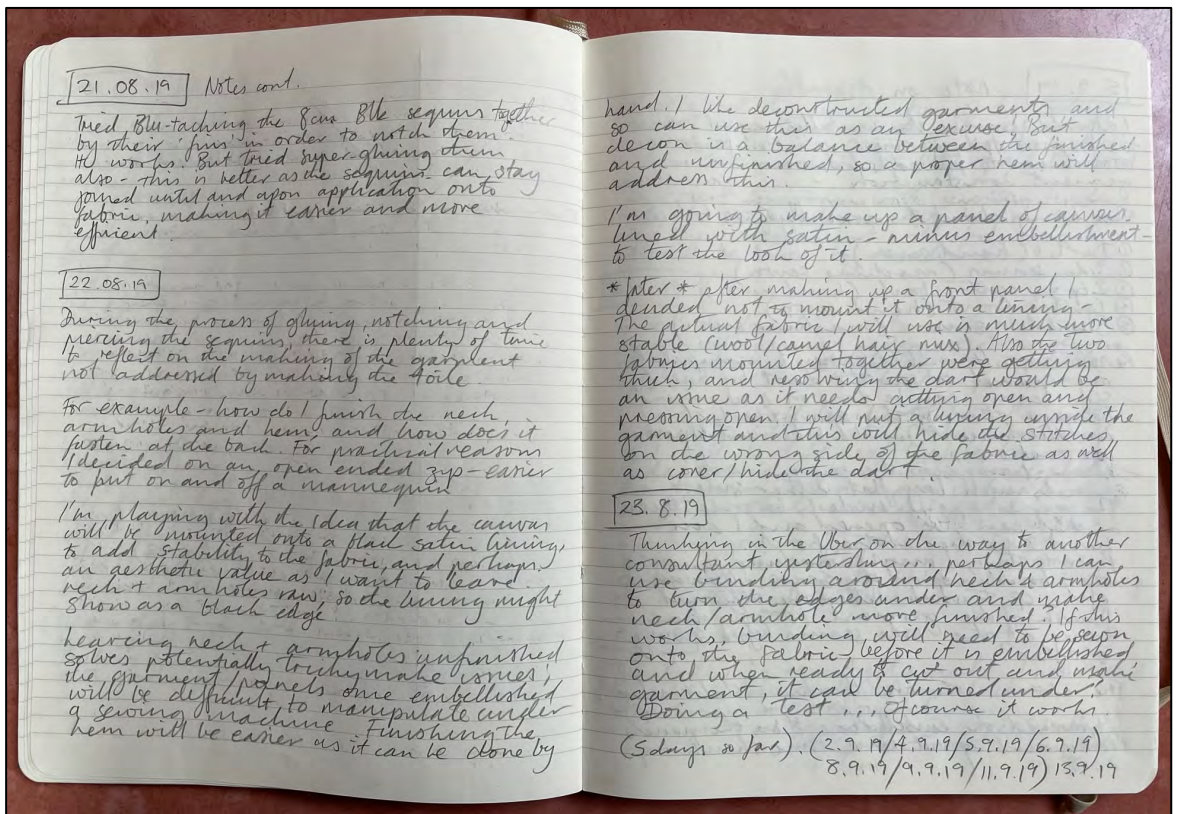 21.08.19 Notes cont.
Tried Blu-taching the 8cm Blk sequins together
by their 'fins' in order to notch them.
It works. But tried super-gluing them
also - this is better as the sequins can stay
joined until and upon application onto
fabric, making it easier and more
efficient.
22.08.19
During the process of gluing, notching and
piercing the sequins, there is plenty of time
to reflect on the making of the garment
not addressed by making the toile.
For example - how do I finish the neck,
armholes and hem, and how does it
fasten at the back. For practical reasons
I decided on an open ended zip - easier
to put on and off a mannequin
I'm playing with the idea that the canvas
will be mounted onto a black satin lining,
to add stability to the fabric, and perhaps
an aesthetic value as I want to leave
neck + armholes raw, so the lining might
show as a black edge.
Leaving neck + armholes unfinished
solves potentially tricky make issues,
the garment/panels once embellished
will be difficult to manipulate under
a sewing machine. Finishing the
hem will be easier as it can be done by
hand. I like deconstructed garments and
so can use this as an 'excuse'. But
decon is a balance between the finished
and unfinished, so a proper hem will
address this.
I'm going to make up a panel of canvas
lined with satin - minus embellishment -
to test the look of it.
*Later* after making up a front panel I
decided not to mount it onto a lining -
The actual fabric I will use is much more
stable (wool/camel hair mix). Also the two
fabrics mounted together were getting
thick, and resolving the dart would be
an issue as it needs cutting open and
pressing open. I will put a lining inside the
garment and this will hide the stitches
on the wrong side of the fabric as well
as cover/hide the dart.
23.8.19
Thinking in the Uber on the way to another
consultant yesterday... perhaps I can
use binding around neck & armholes
to turn the edges under and make
neck/armhole more finished? If this
works, binding will need to be sewn
onto the fabric before it is embellished
and when ready to cut out and make
garment, it can be turned under?
Doing a test... Of course it works.
(5 days so far). (2.9.19/4.9.19/5.9.19/6.9.19)
8.9.19/9.9.19/11.9.19) 13.9.19